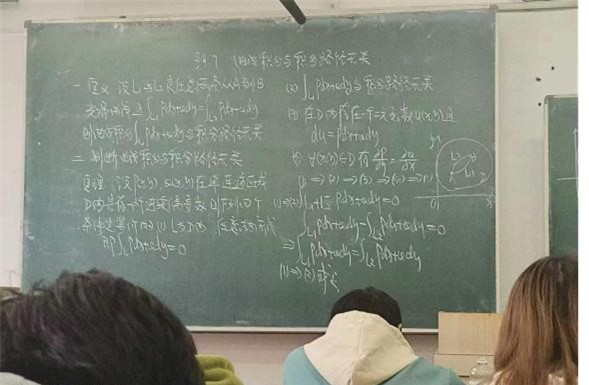 §9.7 曲线积分与积分路径无关
一 定义 设L₁与L₂是任意两条从A到B
光滑曲线且∫_{L₁}Pdx+Qdy=∫_{L₂}Pdx+Qdy
则曲线积分∫_L Pdx+Qdy与积分路径无关
二 判断曲线积分与积分路径无关
定理 设P(x,y),Q(x,y)在单连通区域
D内具有一阶连续偏导数 则下列四个
条件等价 (1) L为D内任意 闭曲线
即∫_L Pdx+Qdy=0
(2) ∫_L Pdx+Qdy与积分路径无关
(3) 在D内存在一个二元函数u(x,y)且
du=Pdx+Qdy
(4) ∀(x,y)∈D 有 ∂P/∂y=∂Q/∂x
(1)⇒(2)⇒(3)⇒(4)⇒(1)
(1)⇒(2) Pdx+Qdy=0
∫_{L₁}Pdx+Qdy-∫_{L₂}Pdx+Qdy=0
⇒∫_{L₁}Pdx+Qdy=∫_{L₂}Pdx+Qdy
(1)⇒(2)成立
y
L₂ B
A L₁ D
0 x